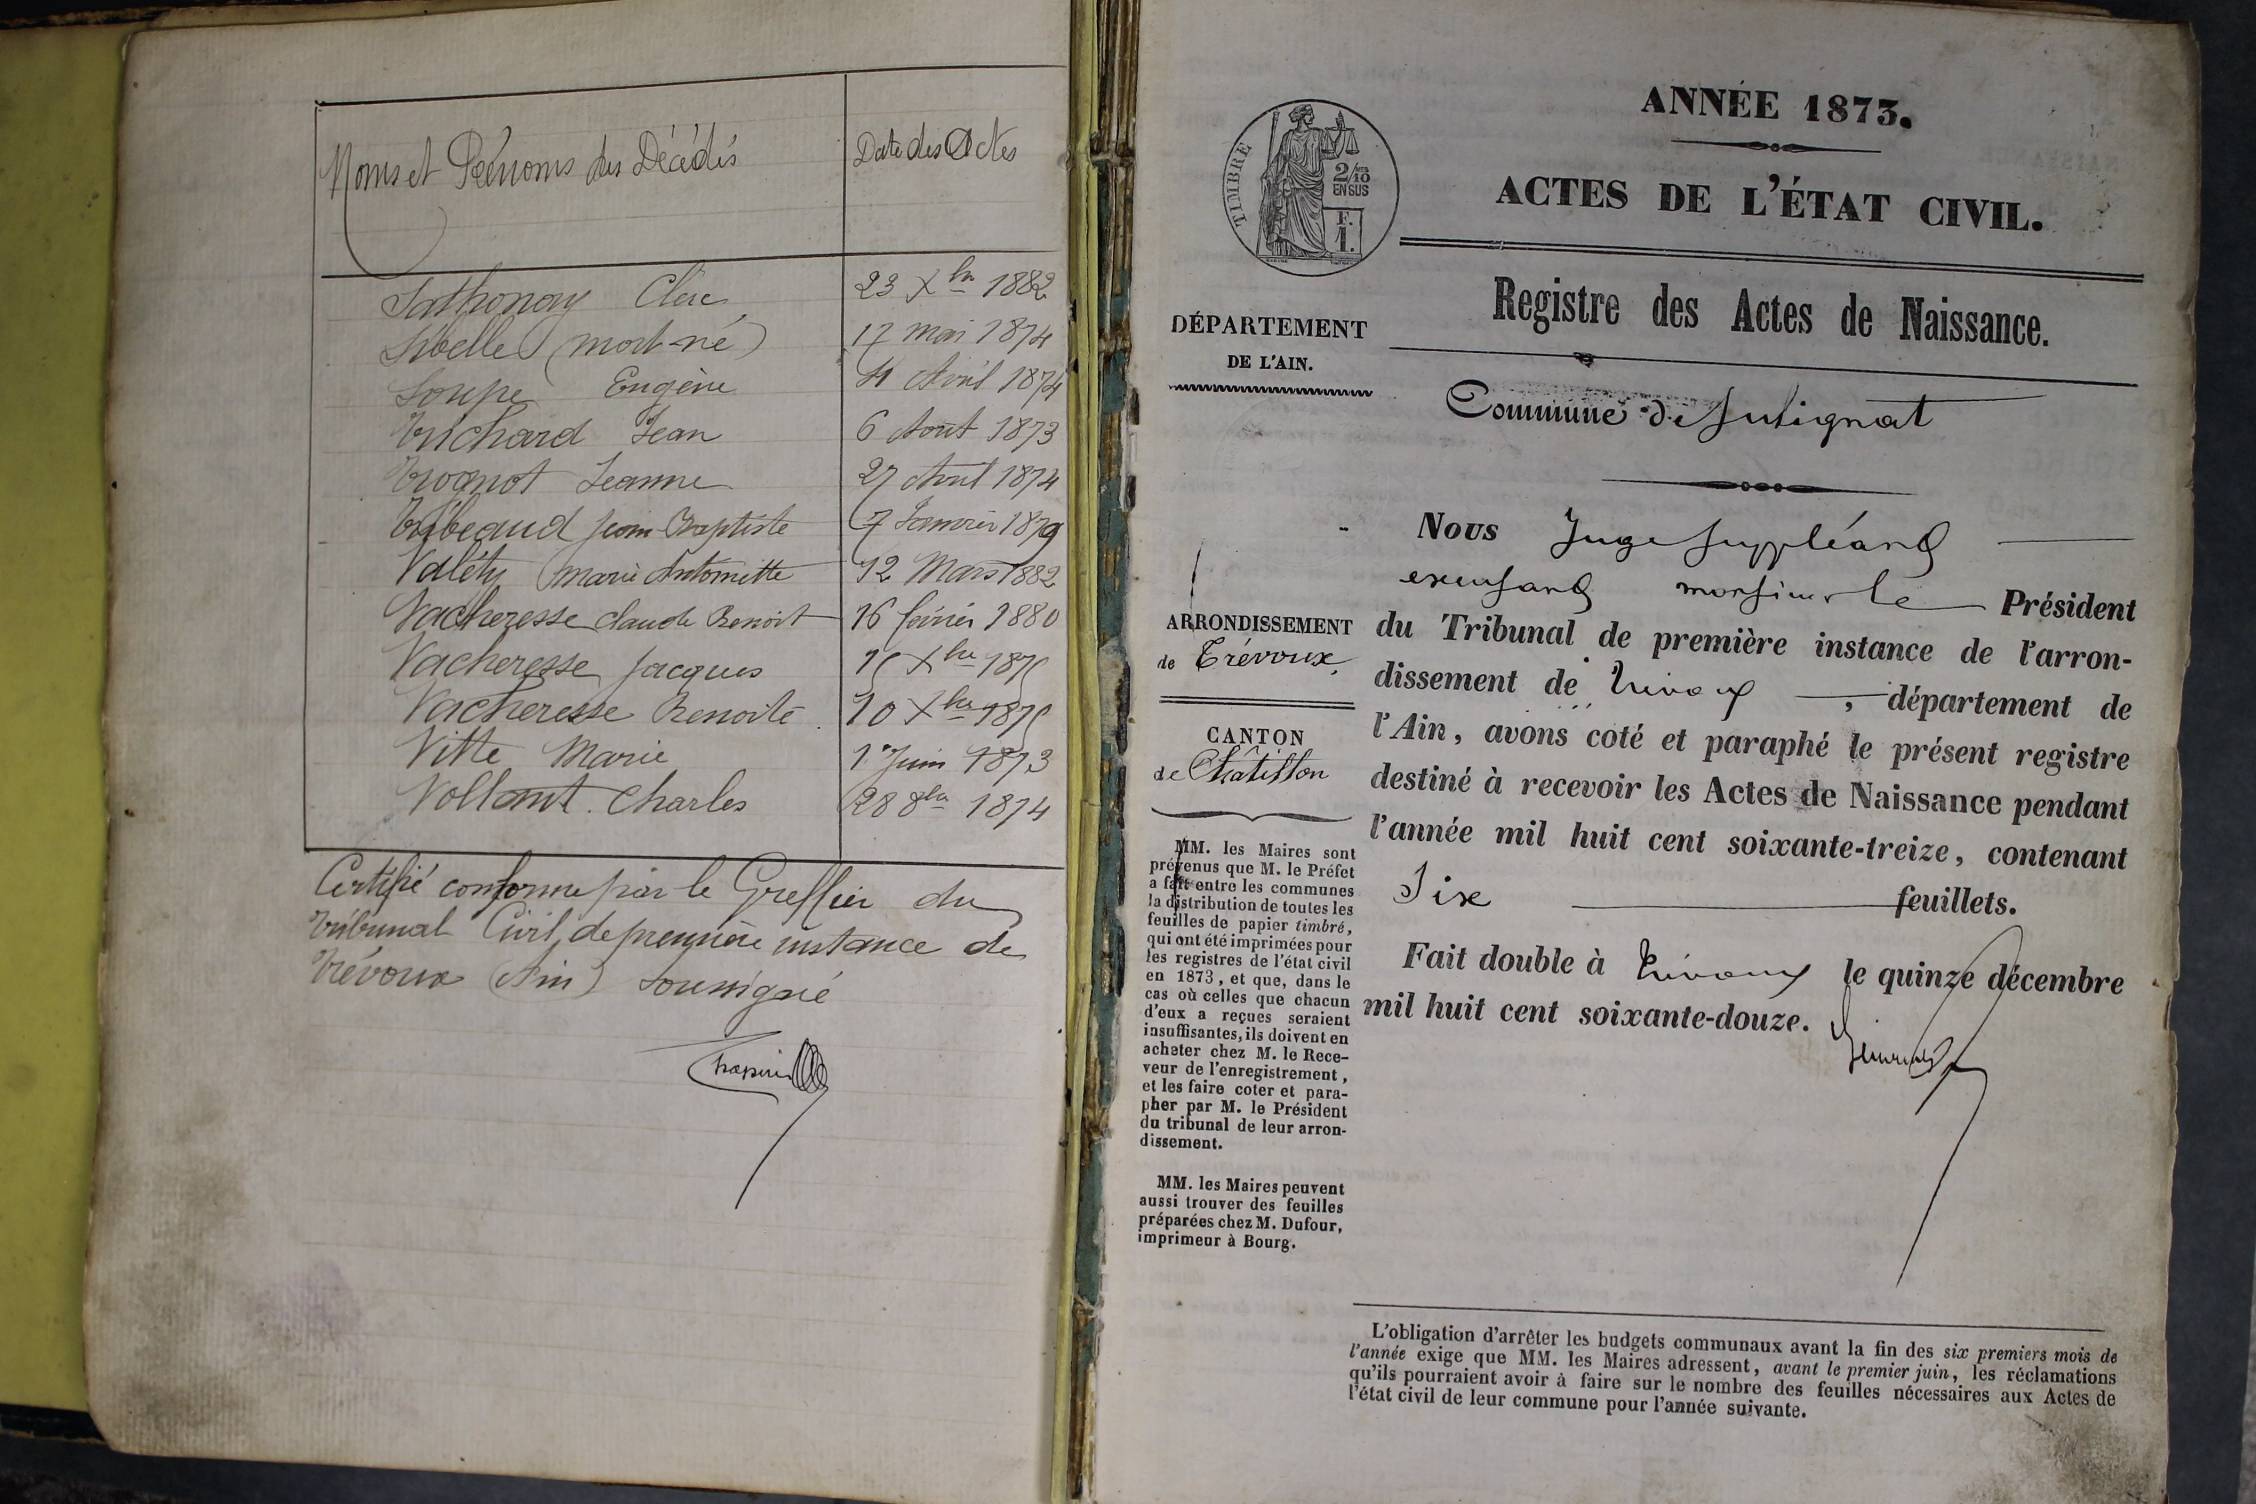 Noms et Prénoms des Décédés
Date des Actes
Sathonay Clere 23 Xbre 1882
Sibelle (mort-né) 17 mai 1874
Soupe Eugène 11 Avril 1874
Trichard Jean 6 Aout 1873
Trognot Jeanne 27 Avril 1874
Tribeaud Jean Baptiste 7 Janvier 1879
Valéty Marie Antoinette 12 Mars 1882
Vacheresse Claude Benoit 16 février 1880
Vacheresse Jacques 15 Xbre 1875
Vacheresse Benoite 10 Xbre 1875
Vitte Marie 1er Juin 1873
Vollant Charles 28 8bre 1874
Certifié conforme par le Greffier du
Tribunal Civil de première instance de
Trévoux (Ain) soussigné
ANNÉE 1873.
ACTES DE L'ÉTAT CIVIL.
TIMBRE
2/10
EN SUS
F.
1.
Registre des Actes de Naissance.
DÉPARTEMENT
DE L'AIN.
Commune de Sulignat
Nous Juge Suppléant
excusant monsieur le Président
du Tribunal de première instance de l'arron-
dissement de Trévoux, département de
l'Ain, avons coté et paraphé le présent registre
destiné à recevoir les Actes de Naissance pendant
l'année mil huit cent soixante-treize, contenant
Six feuillets.
Fait double à Trévoux le quinze décembre
mil huit cent soixante-douze.
ARRONDISSEMENT
de Trévoux
CANTON
de Châtillon
MM. les Maires sont
prévenus que M. le Préfet
a fait entre les communes
la distribution de toutes les
feuilles de papier timbré,
qui ont été imprimées pour
les registres de l'état civil
en 1873, et que, dans le
cas où celles que chacun
d'eux a reçues seraient
insuffisantes, ils doivent en
acheter chez M. le Rece-
veur de l'enregistrement,
et les faire coter et para-
pher par M. le Président
du tribunal de leur arron-
dissement.
MM. les Maires peuvent
aussi trouver des feuilles
préparées chez M. Dufour,
imprimeur à Bourg.
L'obligation d'arrêter les budgets communaux avant la fin des six premiers mois de
l'année exige que MM. les Maires adressent, avant le premier juin, les réclamations
qu'ils pourraient avoir à faire sur le nombre des feuilles nécessaires aux Actes de
l'état civil de leur commune pour l'année suivante.